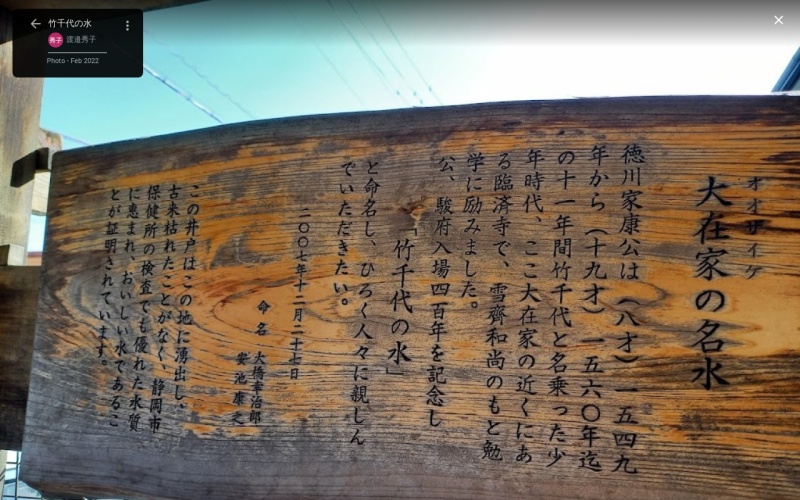 竹千代の水
秀子 渡邉秀子
Photo - Feb 2022
オオザイケ
大在家の名水
徳川家康公は（八才）一五四九
年から（十九才）一五六〇年迄
の十一年間竹千代と名乗った少
年時代、ここ大在家の近くにあ
る臨済寺で、雪齊和尚のもと勉
学に励みました。
公、駿府入場四百年を記念し
「竹千代の水」
と命名し、ひろく人々に親しん
でいただきたい。
二〇〇七年十二月二十七日
命名 大橋幸治郎
安池康之
この井戸はこの地に湧出し、
古来枯れたことがなく、静岡市
保健所の検査でも優れた水質
に恵まれ、おいしい水であるこ
とが証明されています。